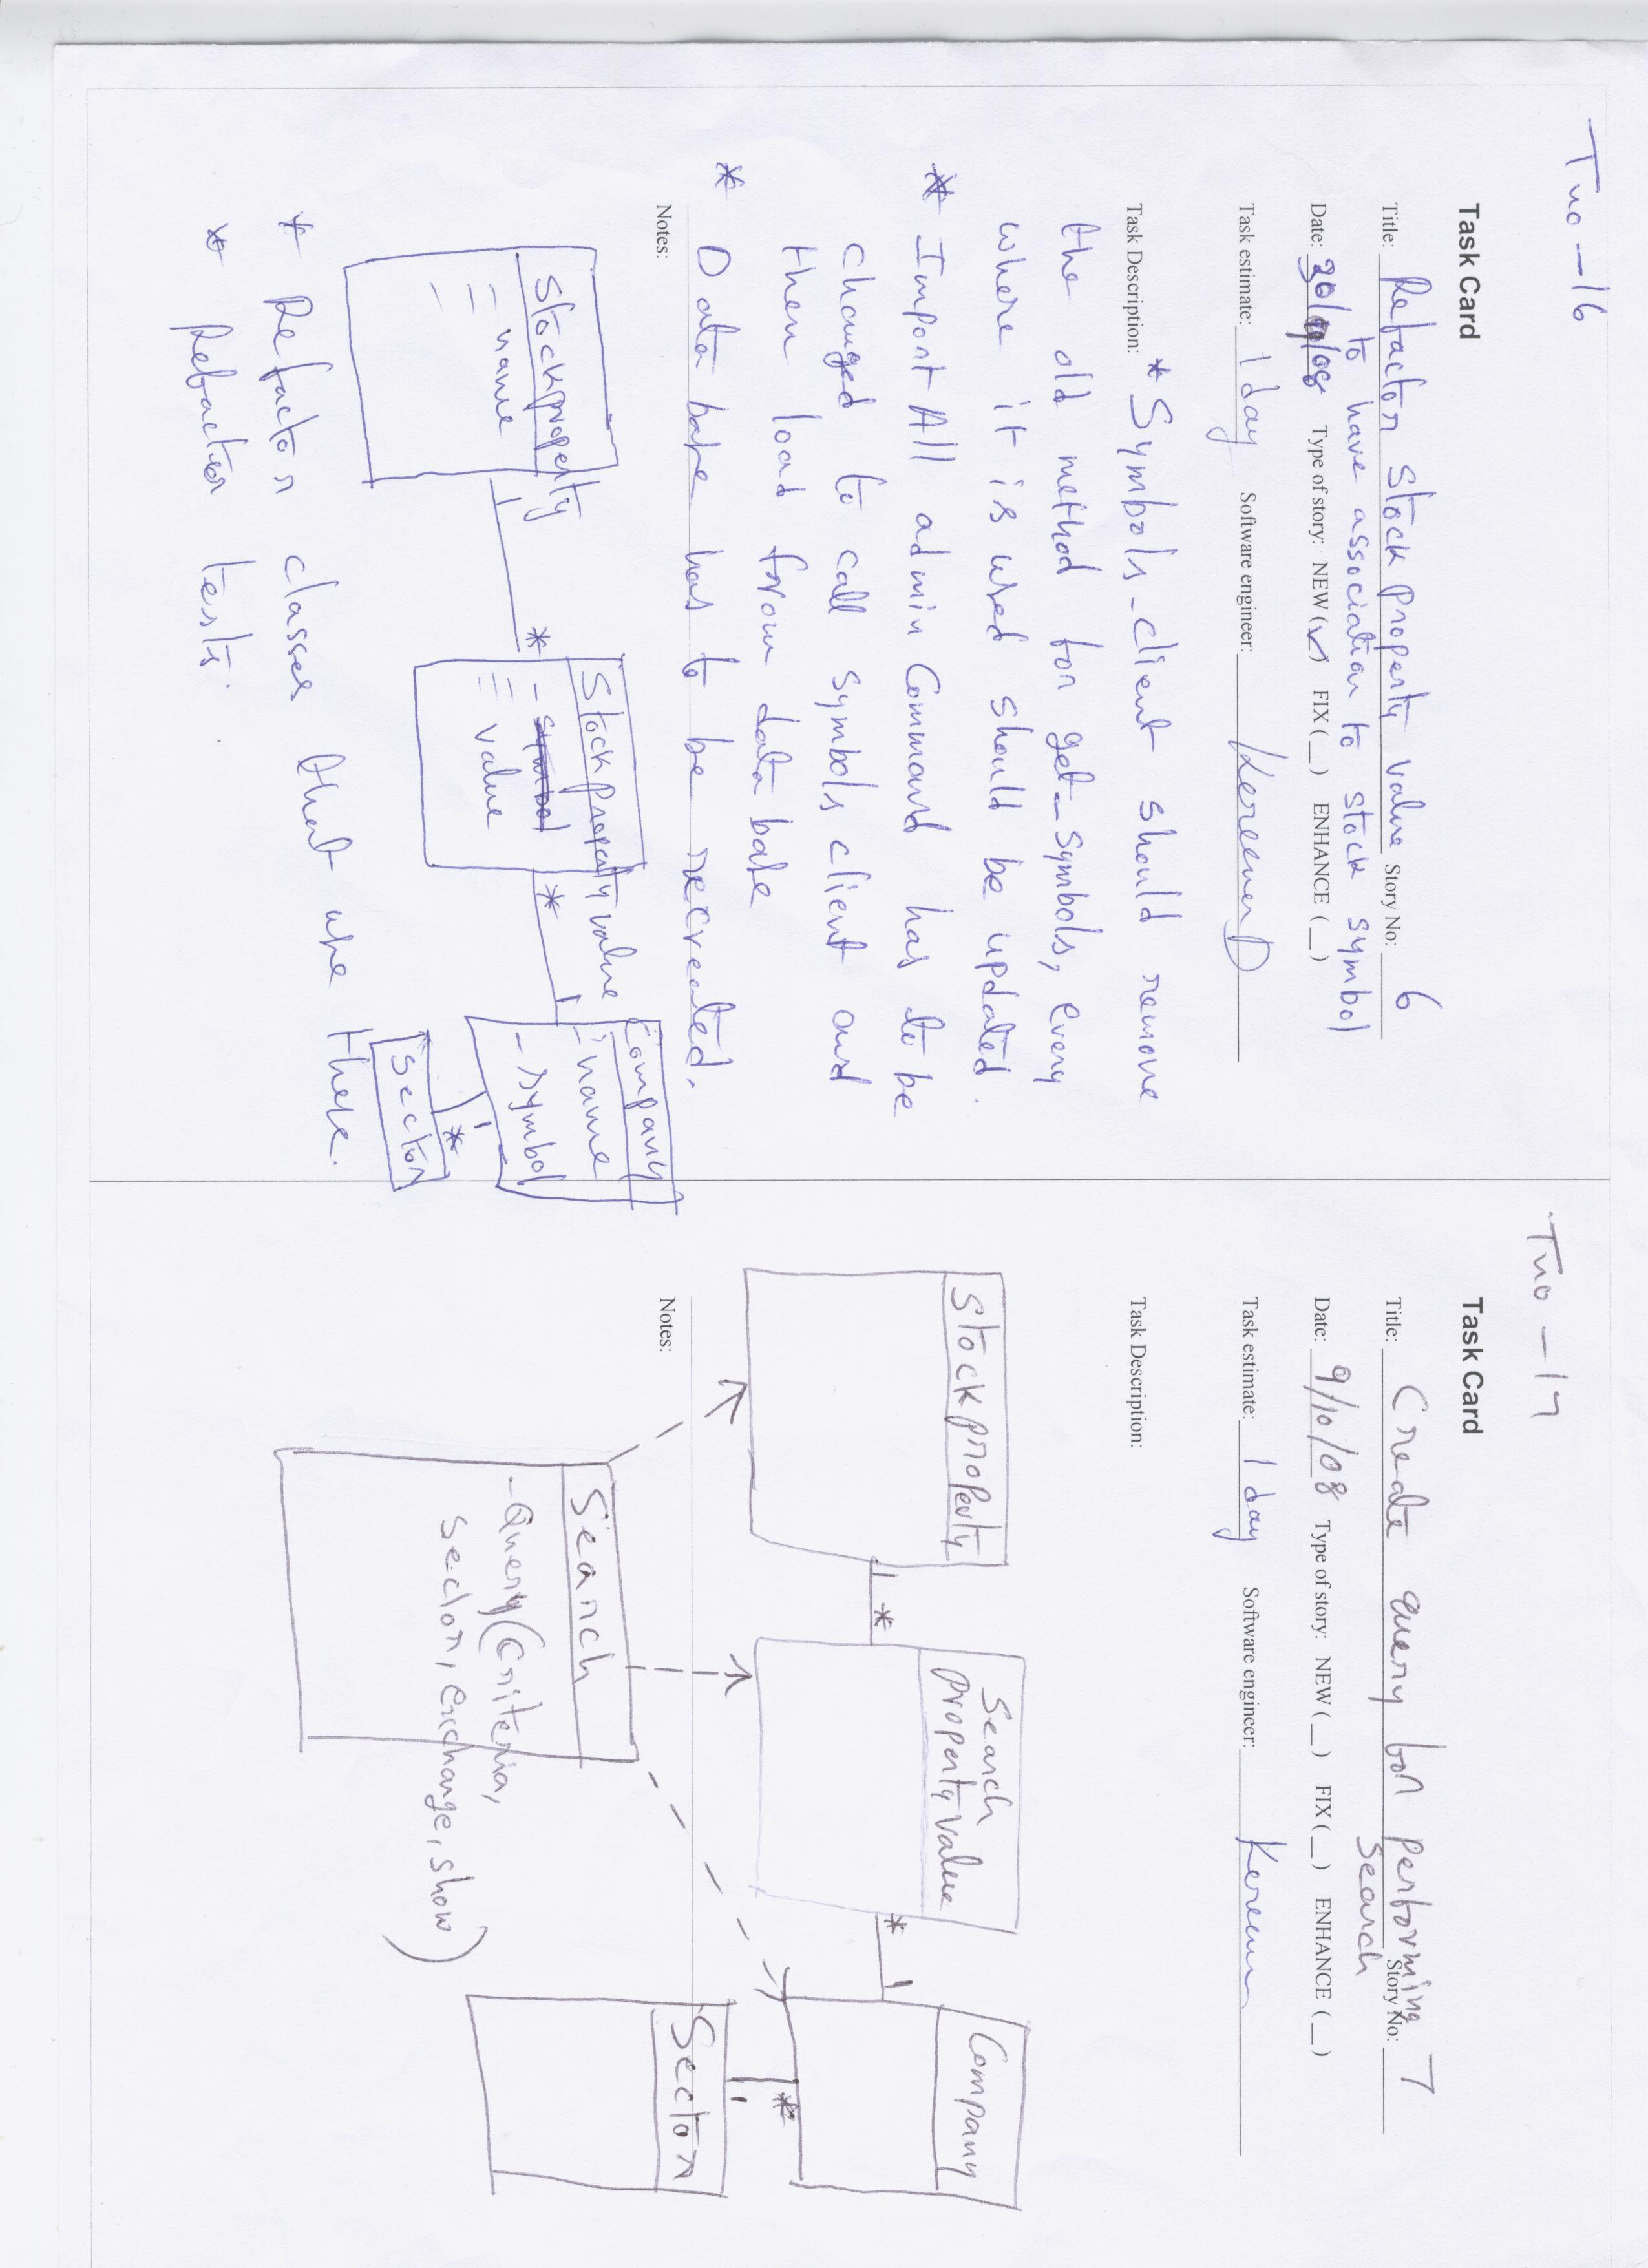 Two-16
Task Card
Title: Refactor Stock property value Story No: 6
to have association to stock symbol
Date: 30/09/08 Type of story: NEW (✓) FIX (_) ENHANCE (_)
Task estimate: 1 day Software engineer: Kereem
Task Description: * Symbols_client should remove
the old method for get_symbols, every
where it is used should be updated.
* Import All admin Command has to be
changed to call symbols client and
then load from data base
* Data base has to be recreated.
Notes:
Stock property
- name
-
-
1
*
Stock property value
- symbol
- value
-
*
1
Company
- name
- symbol
1
*
Sector
* Refactor classes that use these.
* Refactor tests.
Two-17
Task Card
Title: Create query for performing Story No: 7
Search
Date: 9/10/08 Type of story: NEW (_) FIX (_) ENHANCE (_)
Task estimate: 1 day Software engineer: Kereem
Task Description:
Stock property
1
*
Search
property value
*
1
Company
*
1
Sector
Notes:
Search
- Query (Criteria,
Sector, Exchange, show)